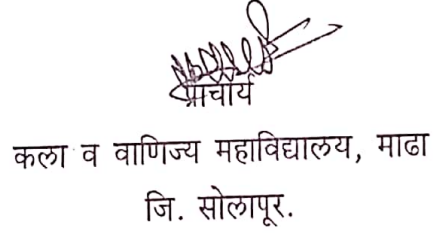 प्राचार्य
कला व वाणिज्य महाविद्यालय, माढा
जि. सोलापूर.